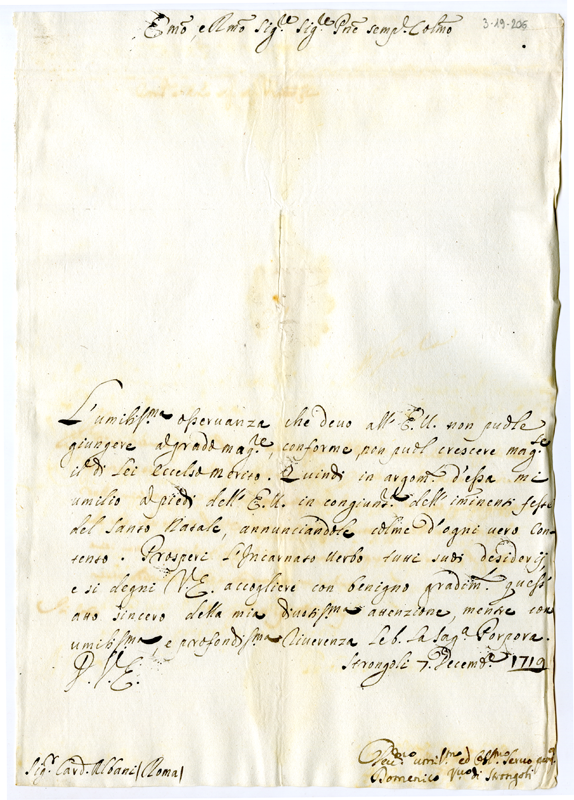 Em̃o, e Rm̃o Sig.re Sig.re Pñe semp.e Colm̃o
3-19-206
L'umiliss.ma osservanza che devo all' E.V. non puole
giungere a grado mag.re, conforme non puol crescere mag.te
il di Lei eccelso merito. Quindi in argom.to d'essa mi
umilio a piedi dell' E.V. in congiunt.a dell' im̃inenti feste
del Santo Natale, annunciandole colme d'ogni vero con
tento. Prosperi l'Incarnato Verbo tutti suoi desiderij
e si degni V.E. accogliere con benigno gradim.to quest'
atto sincero della mia divotiss.ma attenzione, mentre con
umiliss.ma, e profondiss.ma Riverenza Le b. la Sag.a Porpora.
D. V. E.
Strongoli 7. Decemb.e 1719
Sig.r Card. Albani (Roma)
umiliss.mo ed Obl.mo Servo
Domenico di Strongoli